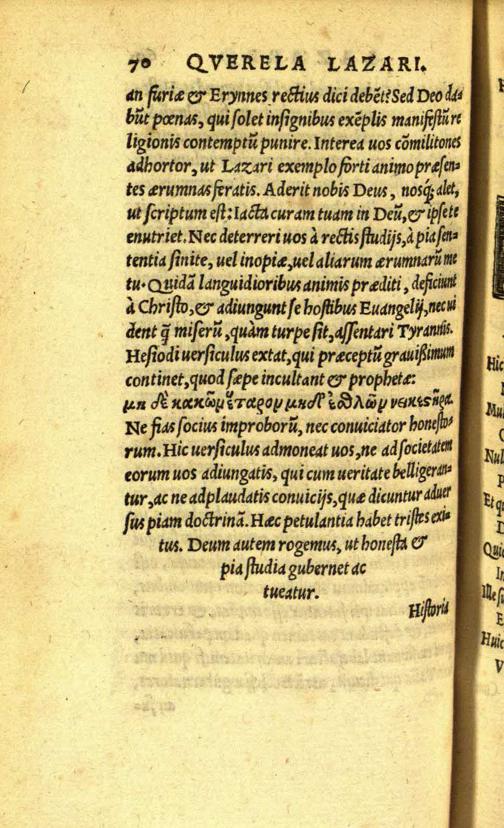 70 QVERELA LAZARI.
an furiæ & Erynnes rectius dici debẽt? Sed Deo da-
būt pœnas, qui solet insignibus exẽplis manifestū re
ligionis contemptū punire. Interea uos cōmilitones
adhortor, ut Lazari exemplo forti animo præsen-
tes ærumnas feratis. Aderit nobis Deus, nosq́; alet,
ut scriptum est: Iacta curam tuam in Deū, & ipse te
enutriet. Nec deterreri uos à rectis studijs, à pia sen-
tentia sinite, uel inopiæ, uel aliarum ærumnarū me
tu. Quidā languidioribus animis præditi, deficiunt
à Christo, & adiungunt se hostibus Euangelij, nec ui
dent q̄ miserū, quàm turpe sit, assentari Tyrannis.
Hesiodi uersiculus extat, qui præceptū grauißimum
continet, quod sæpe incultant & prophetæ:
μη δὲ κακῶμ ἕταρομ μηδ' ἐσθλῶμ νεικεςῆρα.
Ne fias socius improborū, nec conuiciator honesto-
rum. Hic uersiculus admoneat uos, ne ad societatem
eorum uos adiungatis, qui cum ueritate belligeran-
tur, ac ne adplaudatis conuicijs, quæ dicuntur aduer
sus piam doctrinā. Hæc petulantia habet tristes exi-
tus. Deum autem rogemus, ut honesta &
pia studia gubernet ac
tueatur.
Historia
Hic
Mul
Nul
P
Et q
D
Quic
In
Ille si
E
Huic
V